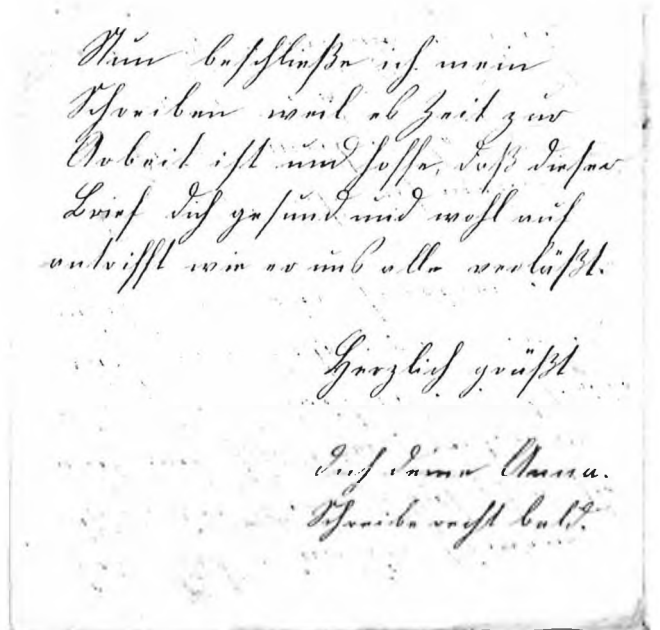 Nun beschließe ich mein
Schreiben weil es Zeit zur
Arbeit ist und hoffe, daß dieser
Brief dich gesund und wohl auf
antrifft wie er uns alle verläßt.
Herzlich grüßt
dich deine Anna.
Schreibe recht bald.